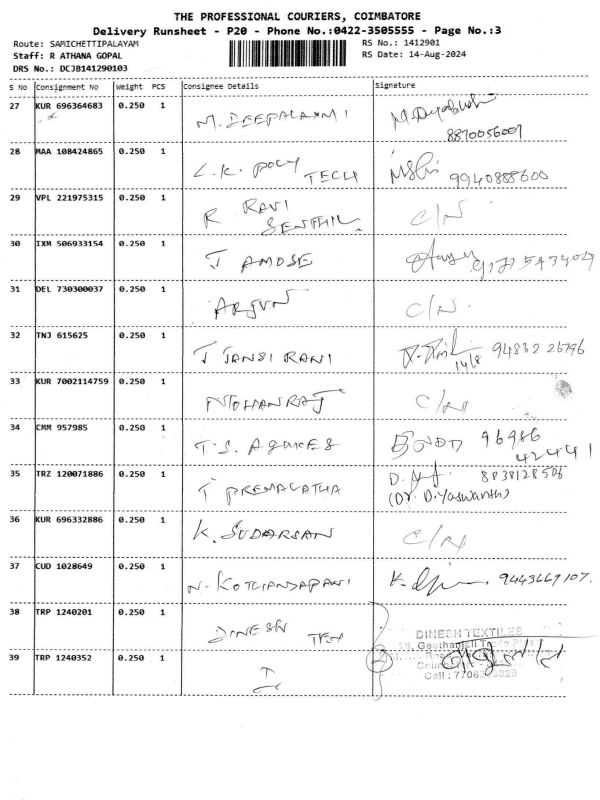 THE PROFESSIONAL COURIERS, COIMBATORE
Delivery Runsheet - P20 - Phone No.:0422-3505555 - Page No.:3
Route: SAMICHETTIPALAYAM RS No.: 1412901
Staff: R ATHANA GOPAL RS Date: 14-Aug-2024
DRS No.: DCJB141290103
S No Consignment No Weight PCS Consignee Details Signature
27 KUR 696364683 0.250 1 M. DEEPALAXMI
8870056007
28 MAA 108424865 0.250 1 L.K. POLY TECH 9940888600
29 VPL 221975315 0.250 1 R RAVI SENTHIL C/N
30 IXM 506933154 0.250 1 J AMOSE
31 DEL 730300037 0.250 1 ARJUN C/N
32 TNJ 615625 0.250 1 J JANSI RANI 14/8
33 KUR 7002114759 0.250 1 MOHANRAJ C/N
34 CMM 957985 0.250 1 T.S. AGNES 96986
42441
35 TRZ 120071886 0.250 1 T PREMALATHA D. 8838128506
(Dr. D. Yaswanth)
36 KUR 696332886 0.250 1 K. SUDARSAN C/N
37 CUD 1028649 0.250 1 N. KOTHANDAPANI K. 9443669107.
38 TRP 1240201 0.250 1 DINESH TEX
DINESH TEXTILES
39 TRP 1240352 0.250 1 2
Cell :